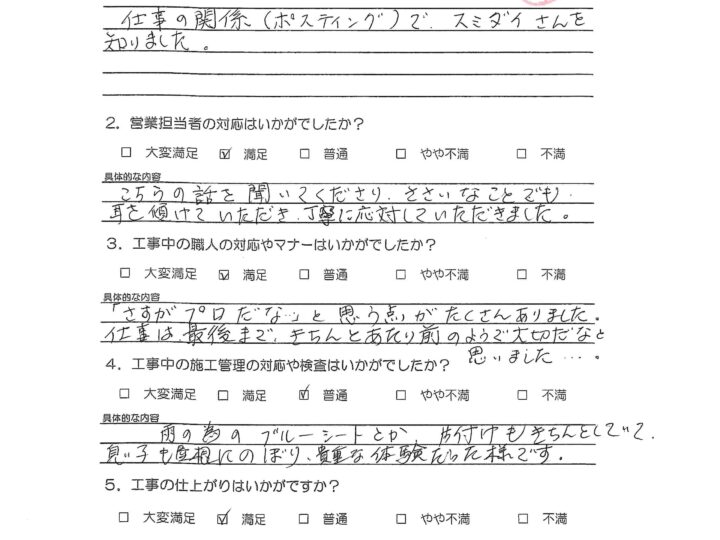 仕事の関係(ポスティング)で、スミダイさんを
知りました。
2. 営業担当者の対応はいかがでしたか?
□ 大変満足 ☑ 満足 □ 普通 □ やや不満 □ 不満
具体的な内容
こちらの話を聞いてくださり、ささいなことでも、
耳を傾けていただき、丁寧に応対していただきました。
3. 工事中の職人の対応やマナーはいかがでしたか?
□ 大変満足 ☑ 満足 □ 普通 □ やや不満 □ 不満
具体的な内容
「さすがプロだなぁ」と思う点がたくさんありました。
仕事は、最後まで、きちんとあたり前のようで大切だなと
思いました…。
4. 工事中の施工管理の対応や検査はいかがでしたか?
□ 大変満足 □ 満足 ☑ 普通 □ やや不満 □ 不満
具体的な内容
雨の為のブルーシートとか、片付けもきちんとしていて、
息子も屋根にのぼり、貴重な体験だった様です。
5. 工事の仕上がりはいかがですか?
□ 大変満足 ☑ 満足 □ 普通 □ やや不満 □ 不満